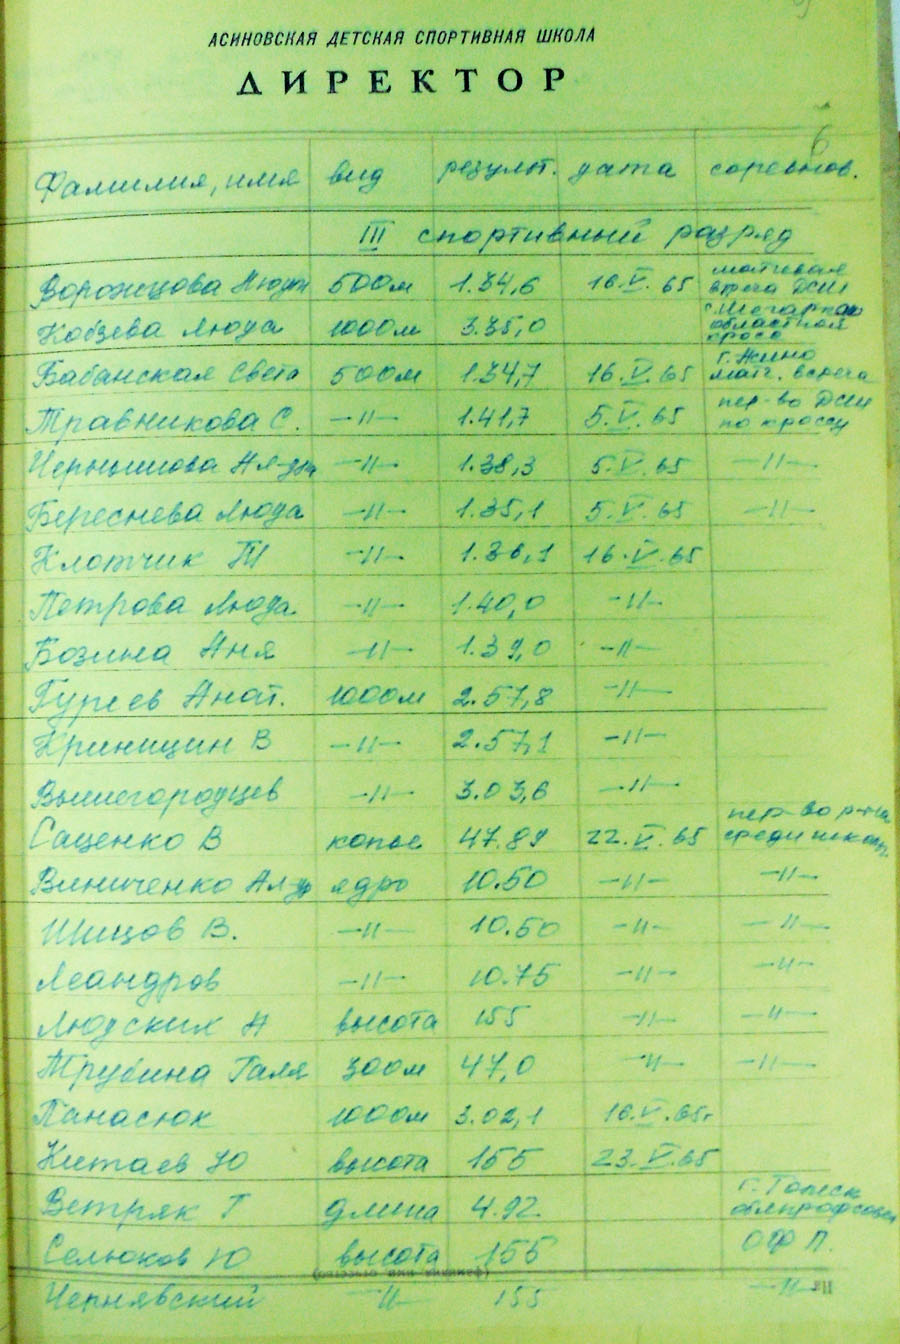 АСИНОВСКАЯ ДЕТСКАЯ СПОРТИВНАЯ ШКОЛА
ДИРЕКТОР
6
Фамилия, имя вид результ. дата соревнов.
III спортивный разряд
Ворожцова Люда 500м 1.34,6 16.V.65 матчевая встреча ДСШ
Кобзева Люда 1000м 3.35,0 областной кросс
Бабанская Света 500м 1.34,7 16.V.65 матч. встреча
Травникова С. —"— 1.41,7 5.V.65 пер-во ДСШ по кроссу
Чернышова —"— 1.38,3 5.V.65 —"—
Береснева Люда —"— 1.35,1 5.V.65 —"—
Клотчик Т —"— 1.36,1 16.V.65
Петрова Люда —"— 1.40,0 —"—
Бозина Аня —"— 1.39,0 —"—
Гуреев Анат. 1000м 2.57,8 —"—
Криницин В —"— 2.57,1 —"—
Вышегородцев —"— 3.03,6 —"—
Саценко В копье 47.89 22.V.65 пер-во р-на среди школ.
Виниченко Ал-др ядро 10.50 —"— —"—
Шицов В. —"— 10.50 —"— —"—
Леандров —"— 10.75 —"— —"—
Людских А высота 155 —"— —"—
Трубина Галя 300м 47,0 —"— —"—
Панасюк 1000м 3.02,1 16.V.65г
Китаев Ю высота 155 23.V.65
Ветряк Г длина 4.92 г. Томск облпрофсовет
Селюков Ю высота 155 ОФП.
Чернявский —"— 155 —"—